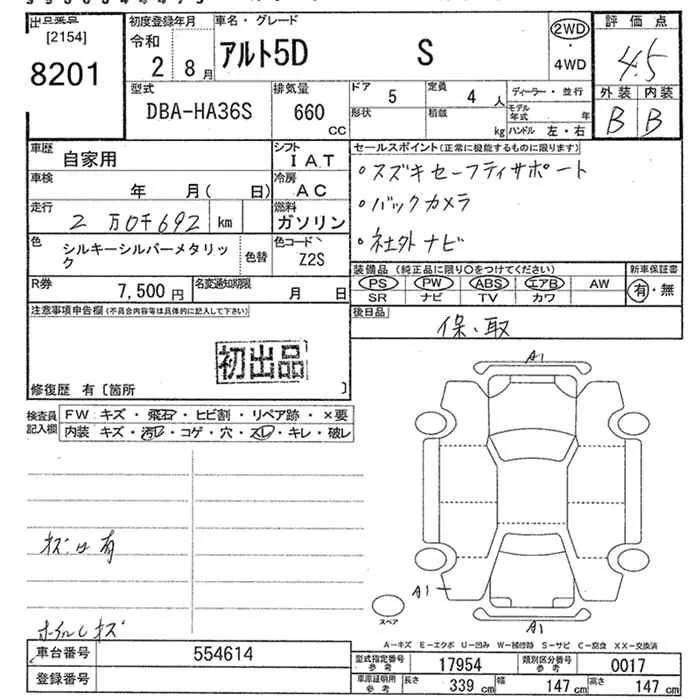 出品票
[2154]
8201
初度登録年月
令和
2 8月
車名・グレード
アルト5D S
2WD
4WD
評価点
4.5
外装 内装
B B
型式
DBA-HA36S
排気量
660
CC
ドア
5
定員
4 人
形状
積載
kg
ディーラー・並行
モデル年式 年
ハンドル 左・右
車歴
自家用
シフト
IAT
セールスポイント(正常に機能するものに限ります)
・スズキセーフティサポート
・バックカメラ
・社外ナビ
車検
年 月( 日)
冷房
AC
走行
2万0千692 km
燃料
ガソリン
色
シルキーシルバーメタリック
色替
色コード
Z2S
装備品(純正品に限り○をつけてください)
PS PW ABS エアB AW
SR ナビ TV カワ
新車保証書
有・無
R券
7,500円
名変通知期限
月 日
後日品
保、取
注意事項申告欄(不具合内容等は具体的に記入して下さい)
初出品
修復歴 有〔箇所 〕
検査員記入欄
FW キズ・飛石・ヒビ割・リペア跡・×要
内装 キズ・汚レ・コゲ・穴・スレ・キレ・破レ
A1
A1
A1
スペア
キズ凹有
ホイルキズ
A―キズ E―エクボ U―凹み W―補修跡 S―サビ C―腐食 XX―交換済
車台番号
554614
登録番号
型式指定番号 参考
17954
類別区分番号 参考
0017
車庫証明用 参考
長さ 339 cm 幅 147 cm 高さ 147 cm